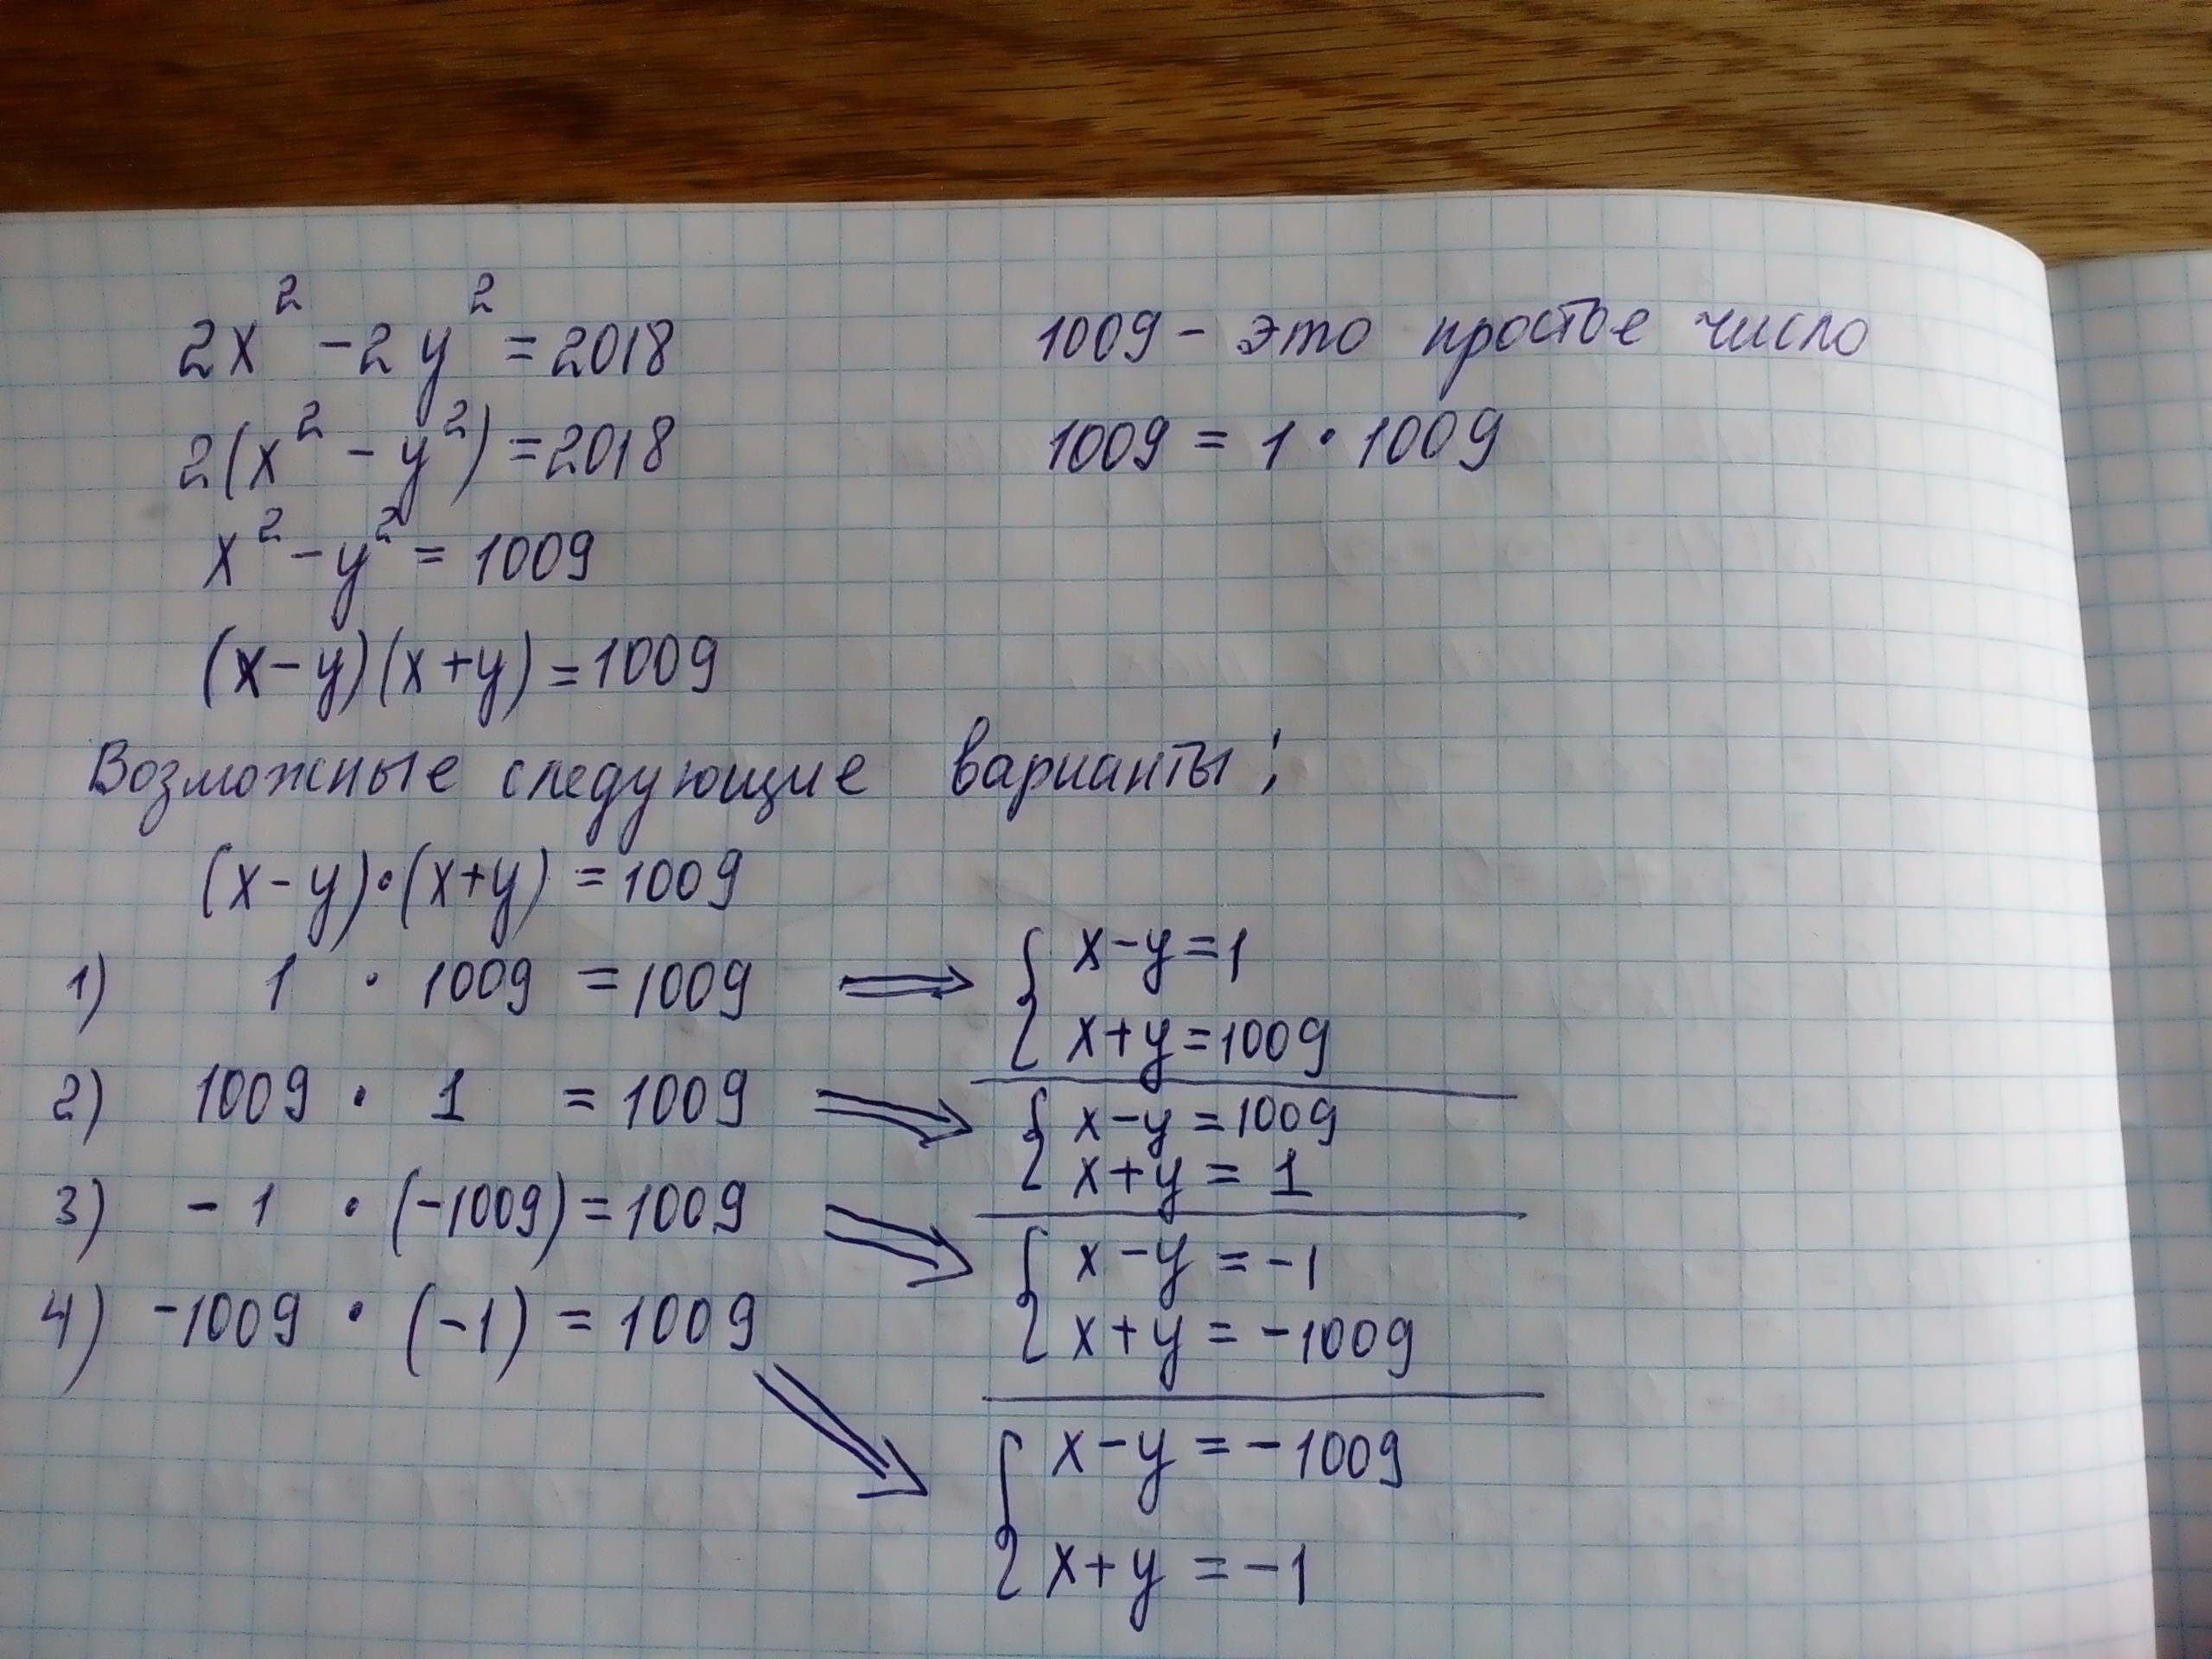 2x² - 2y² = 2018
2(x² - y²) = 2018
x² - y² = 1009
(x - y)(x + y) = 1009
1009 - это простое число
1009 = 1 · 1009
Возможные следующие варианты:
(x - y) · (x + y) = 1009
1) 1 · 1009 = 1009 ⟹ { x - y = 1
x + y = 1009
2) 1009 · 1 = 1009 ⟹ { x - y = 1009
x + y = 1
3) - 1 · (-1009) = 1009 ⟹ { x - y = -1
x + y = -1009
4) -1009 · (-1) = 1009 ⟹ { x - y = -1009
x + y = -1